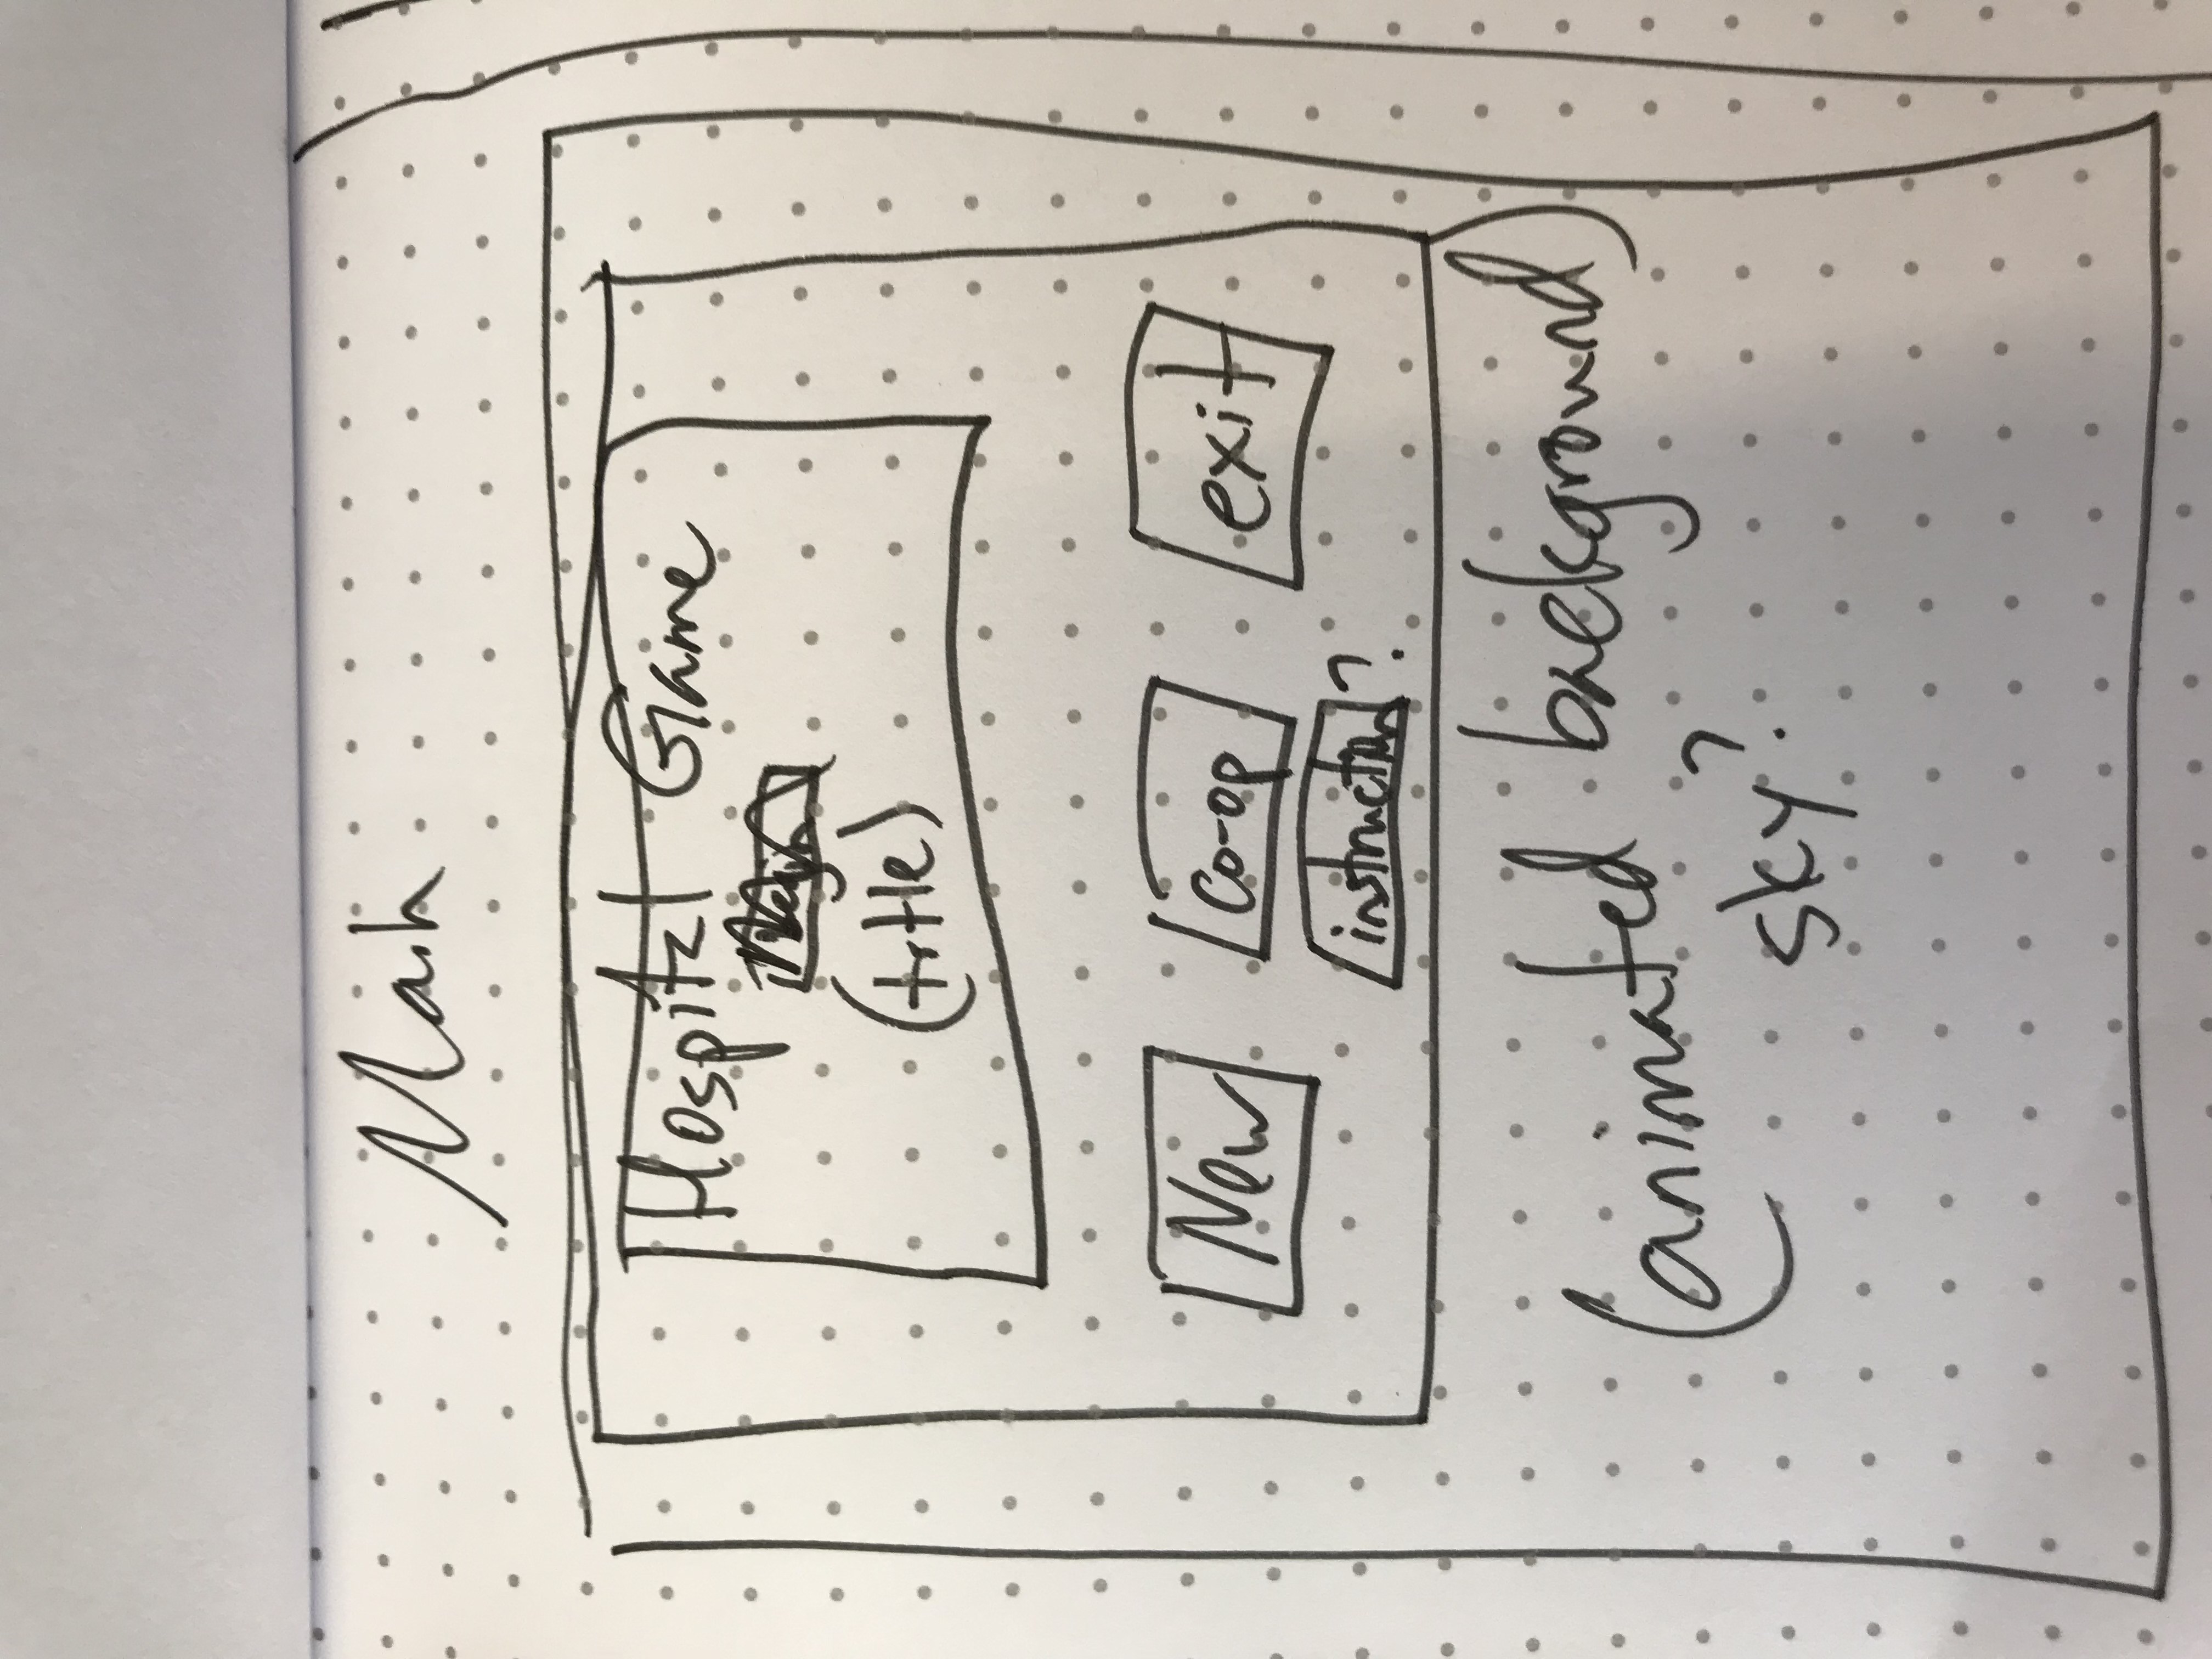 Main
Hospital Game
(title)
New
Co-op
exit
instruction?
(animated background)
sky?